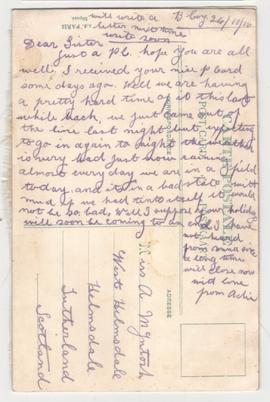 will write a B Coy 24/10/16
letter next time
write soon
Dear Sister
Just a P.C. hope you are all
well, I received your nice p card
some days ago. Well we are having
a pretty hard time of it this last
while back, we just came out of
the line last night but expecting
to go in again to night the weather
is very bad just now raining
almost every day we are in a field
to day and its in a bad state with
mud if we had tents itself it would
not be so bad, Will I suppose your holidays
will soon be coming to an end I have
not heard
from
a long time
will close now
with love
from
Miss A McIntosh
West Helmsdale
Helmsdale
Sutherland
Scotland
PARIS
ADRESSE